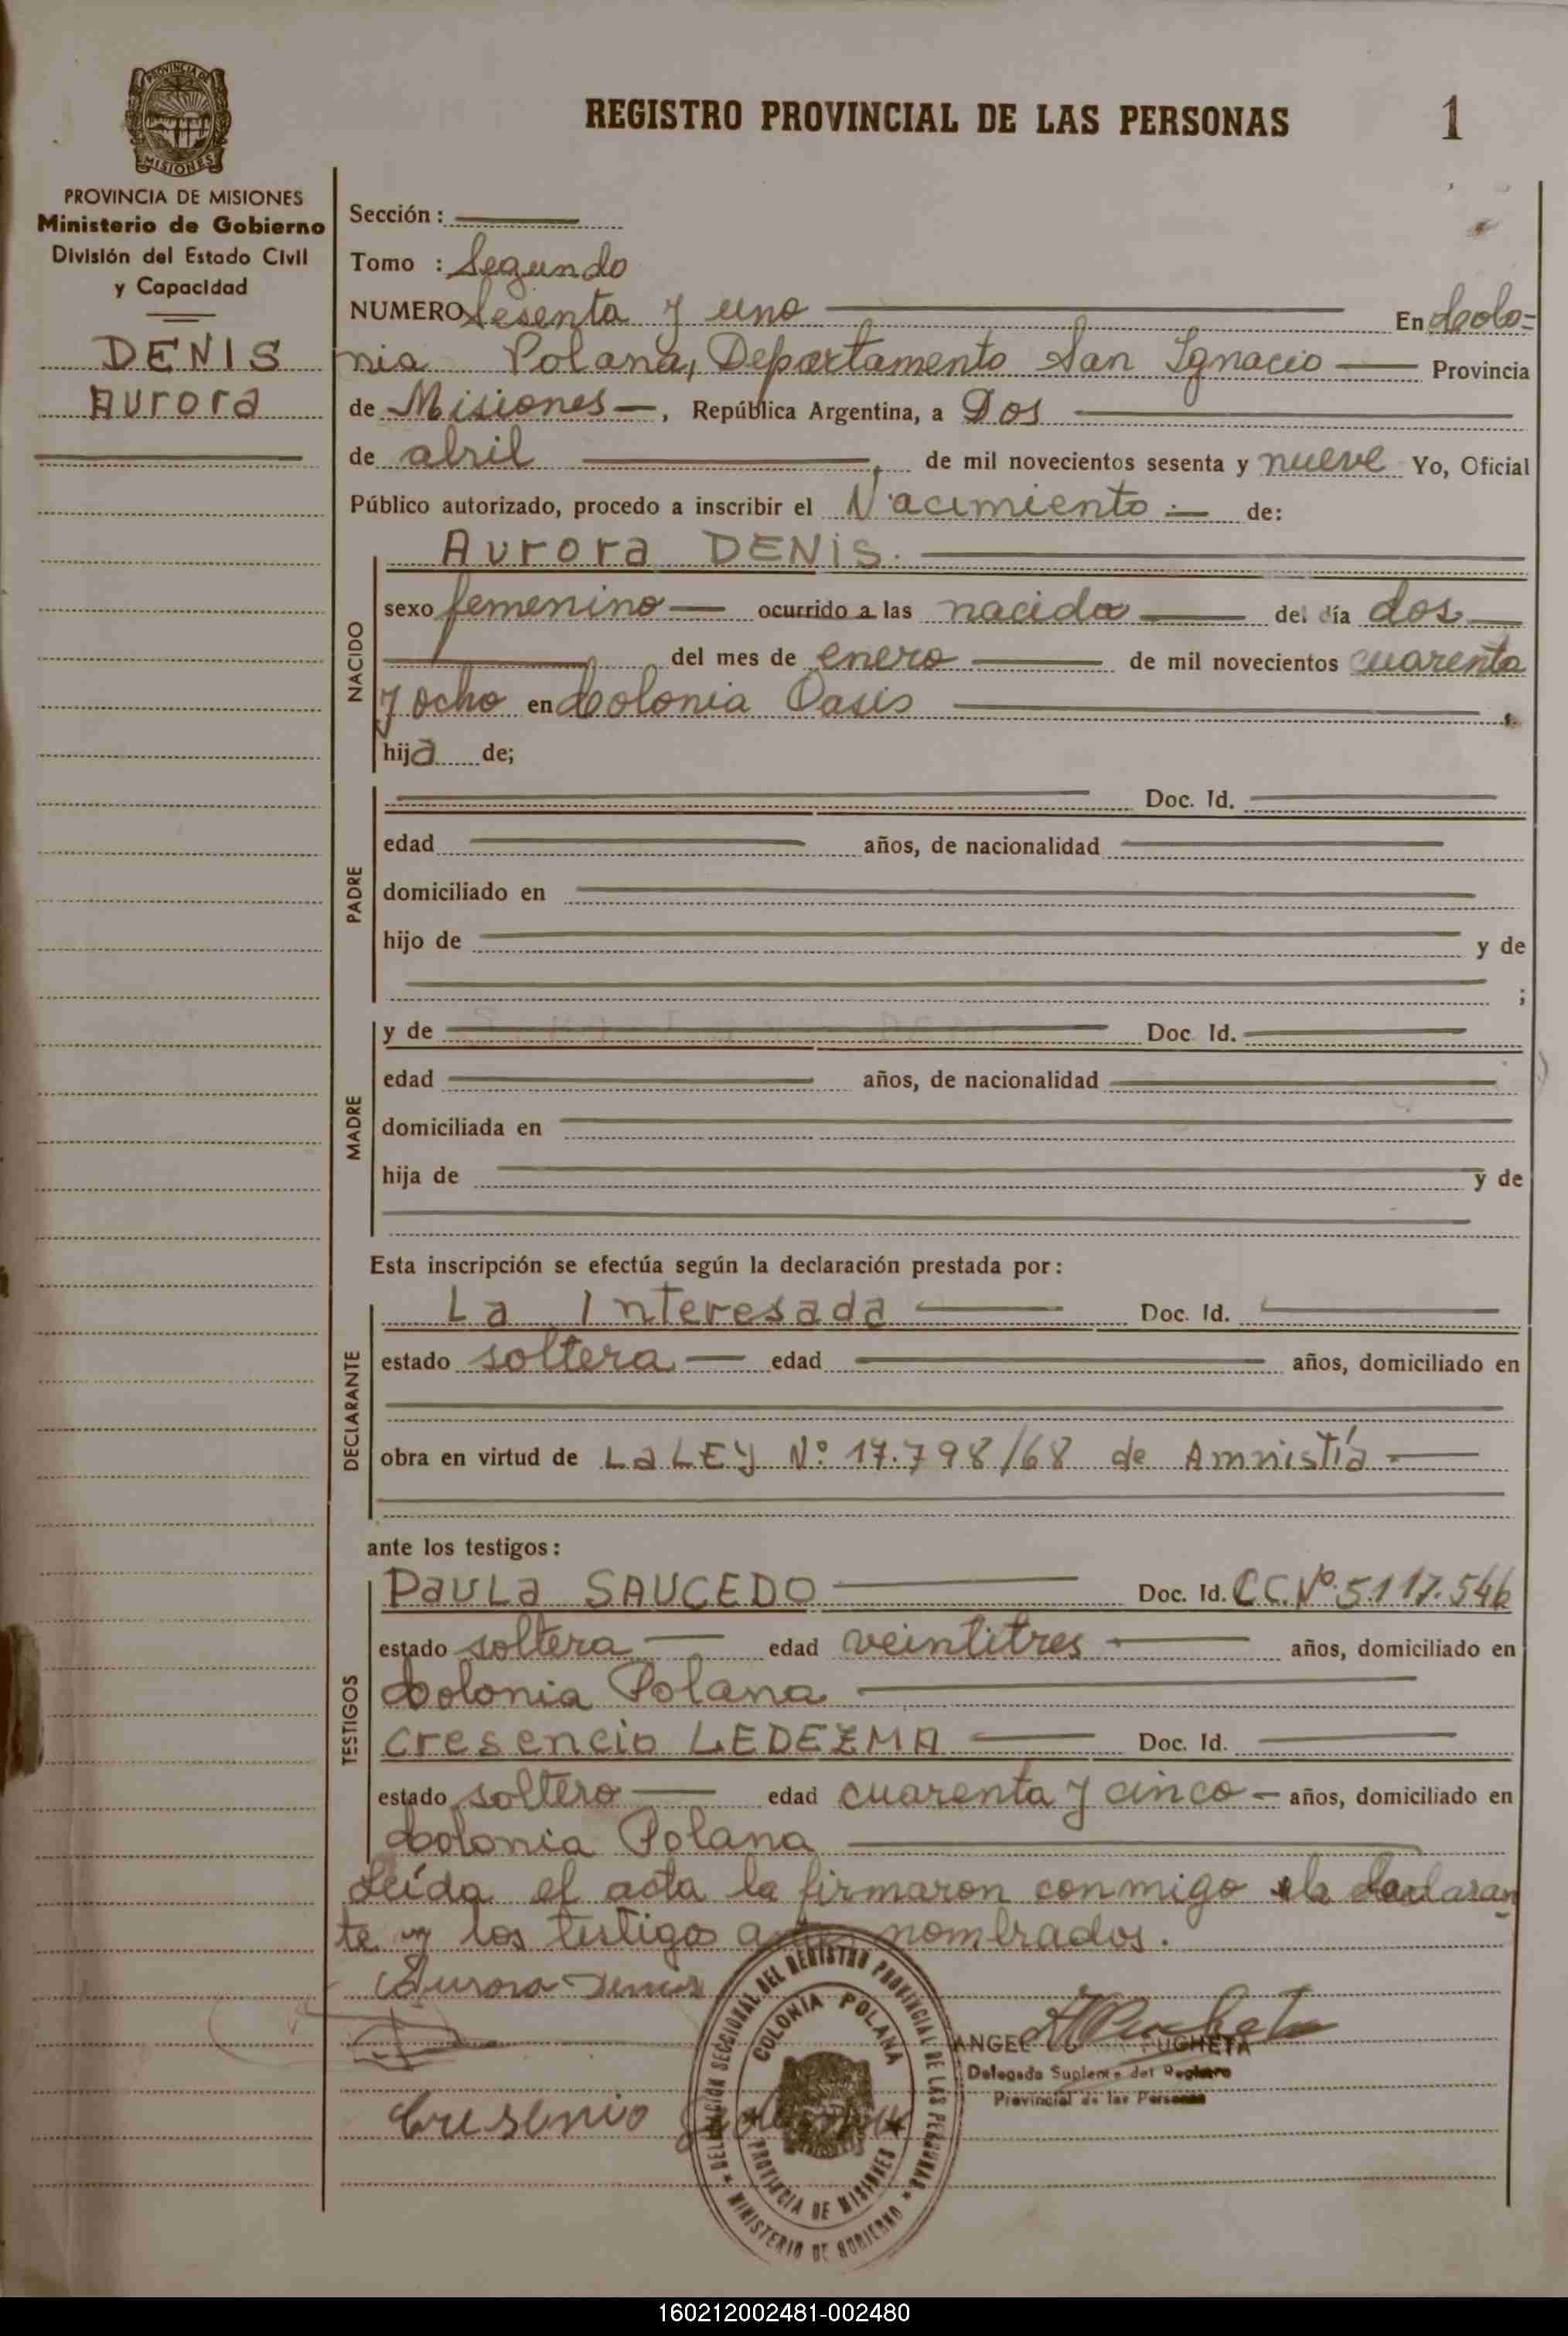 PROVINCIA DE
MISIONES
REGISTRO PROVINCIAL DE LAS PERSONAS 1
PROVINCIA DE MISIONES
Ministerio de Gobierno
División del Estado Civil
y Capacidad
DENIS
Aurora
Sección :
Tomo : Segundo
NUMERO Sesenta y uno En Colo=
nia Polana, Departamento San Ignacio Provincia
de Misiones, República Argentina, a Dos
de abril, de mil novecientos sesenta y nueve Yo, Oficial
Público autorizado, procedo a inscribir el Nacimiento de:
NACIDO
Aurora DENIS.
sexo femenino ocurrido a las nacida del día dos
del mes de enero de mil novecientos cuarenta
y ocho en Colonia Oasis
hija de;
PADRE
Doc. Id.
edad años, de nacionalidad
domiciliado en
hijo de y de
;
MADRE
y de Doc. Id.
edad años, de nacionalidad
domiciliada en
hija de y de
Esta inscripción se efectúa según la declaración prestada por:
DECLARANTE
La Interesada Doc. Id.
estado soltera edad años, domiciliado en
obra en virtud de La LEY Nº 17.798/68 de Amnistía
ante los testigos:
TESTIGOS
Paula SAUCEDO Doc. Id. C.C. Nº 5.117.546
estado soltera edad veintitres años, domiciliado en
Colonia Polana
Cresencio LEDEZMA Doc. Id.
estado soltero edad cuarenta y cinco años, domiciliado en
Colonia Polana
Leída el acta la firmaron conmigo la declaran
te y los testigos antes nombrados.
Aurora Denis
Cresenio
ANGEL PUGHETA
Delegado Suplente del Registro
Provincial de las Personas
DELEGACIÓN SECCIONAL DEL REGISTRO PROVINCIAL DE LAS PERSONAS
COLONIA POLANA
PROVINCIA DE MISIONES
MINISTERIO DE GOBIERNO
160212002481-002480